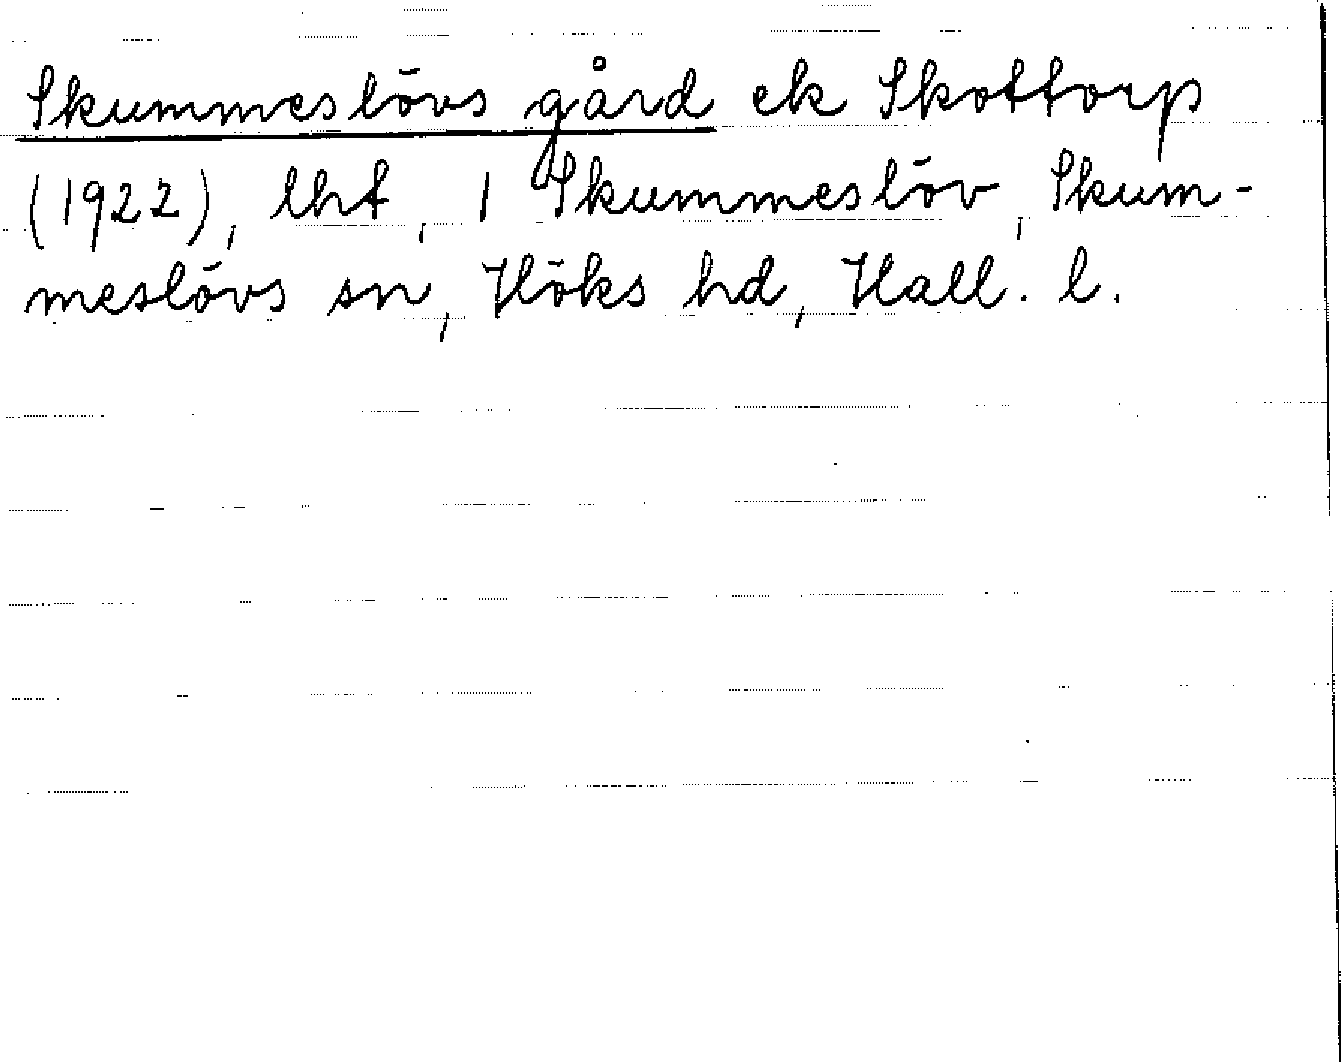 Skummeslövs gård ek Skottorp
(1922), lht, 1 Skummeslöv, Skum-
meslövs sn, Höks hd, Hall. l.